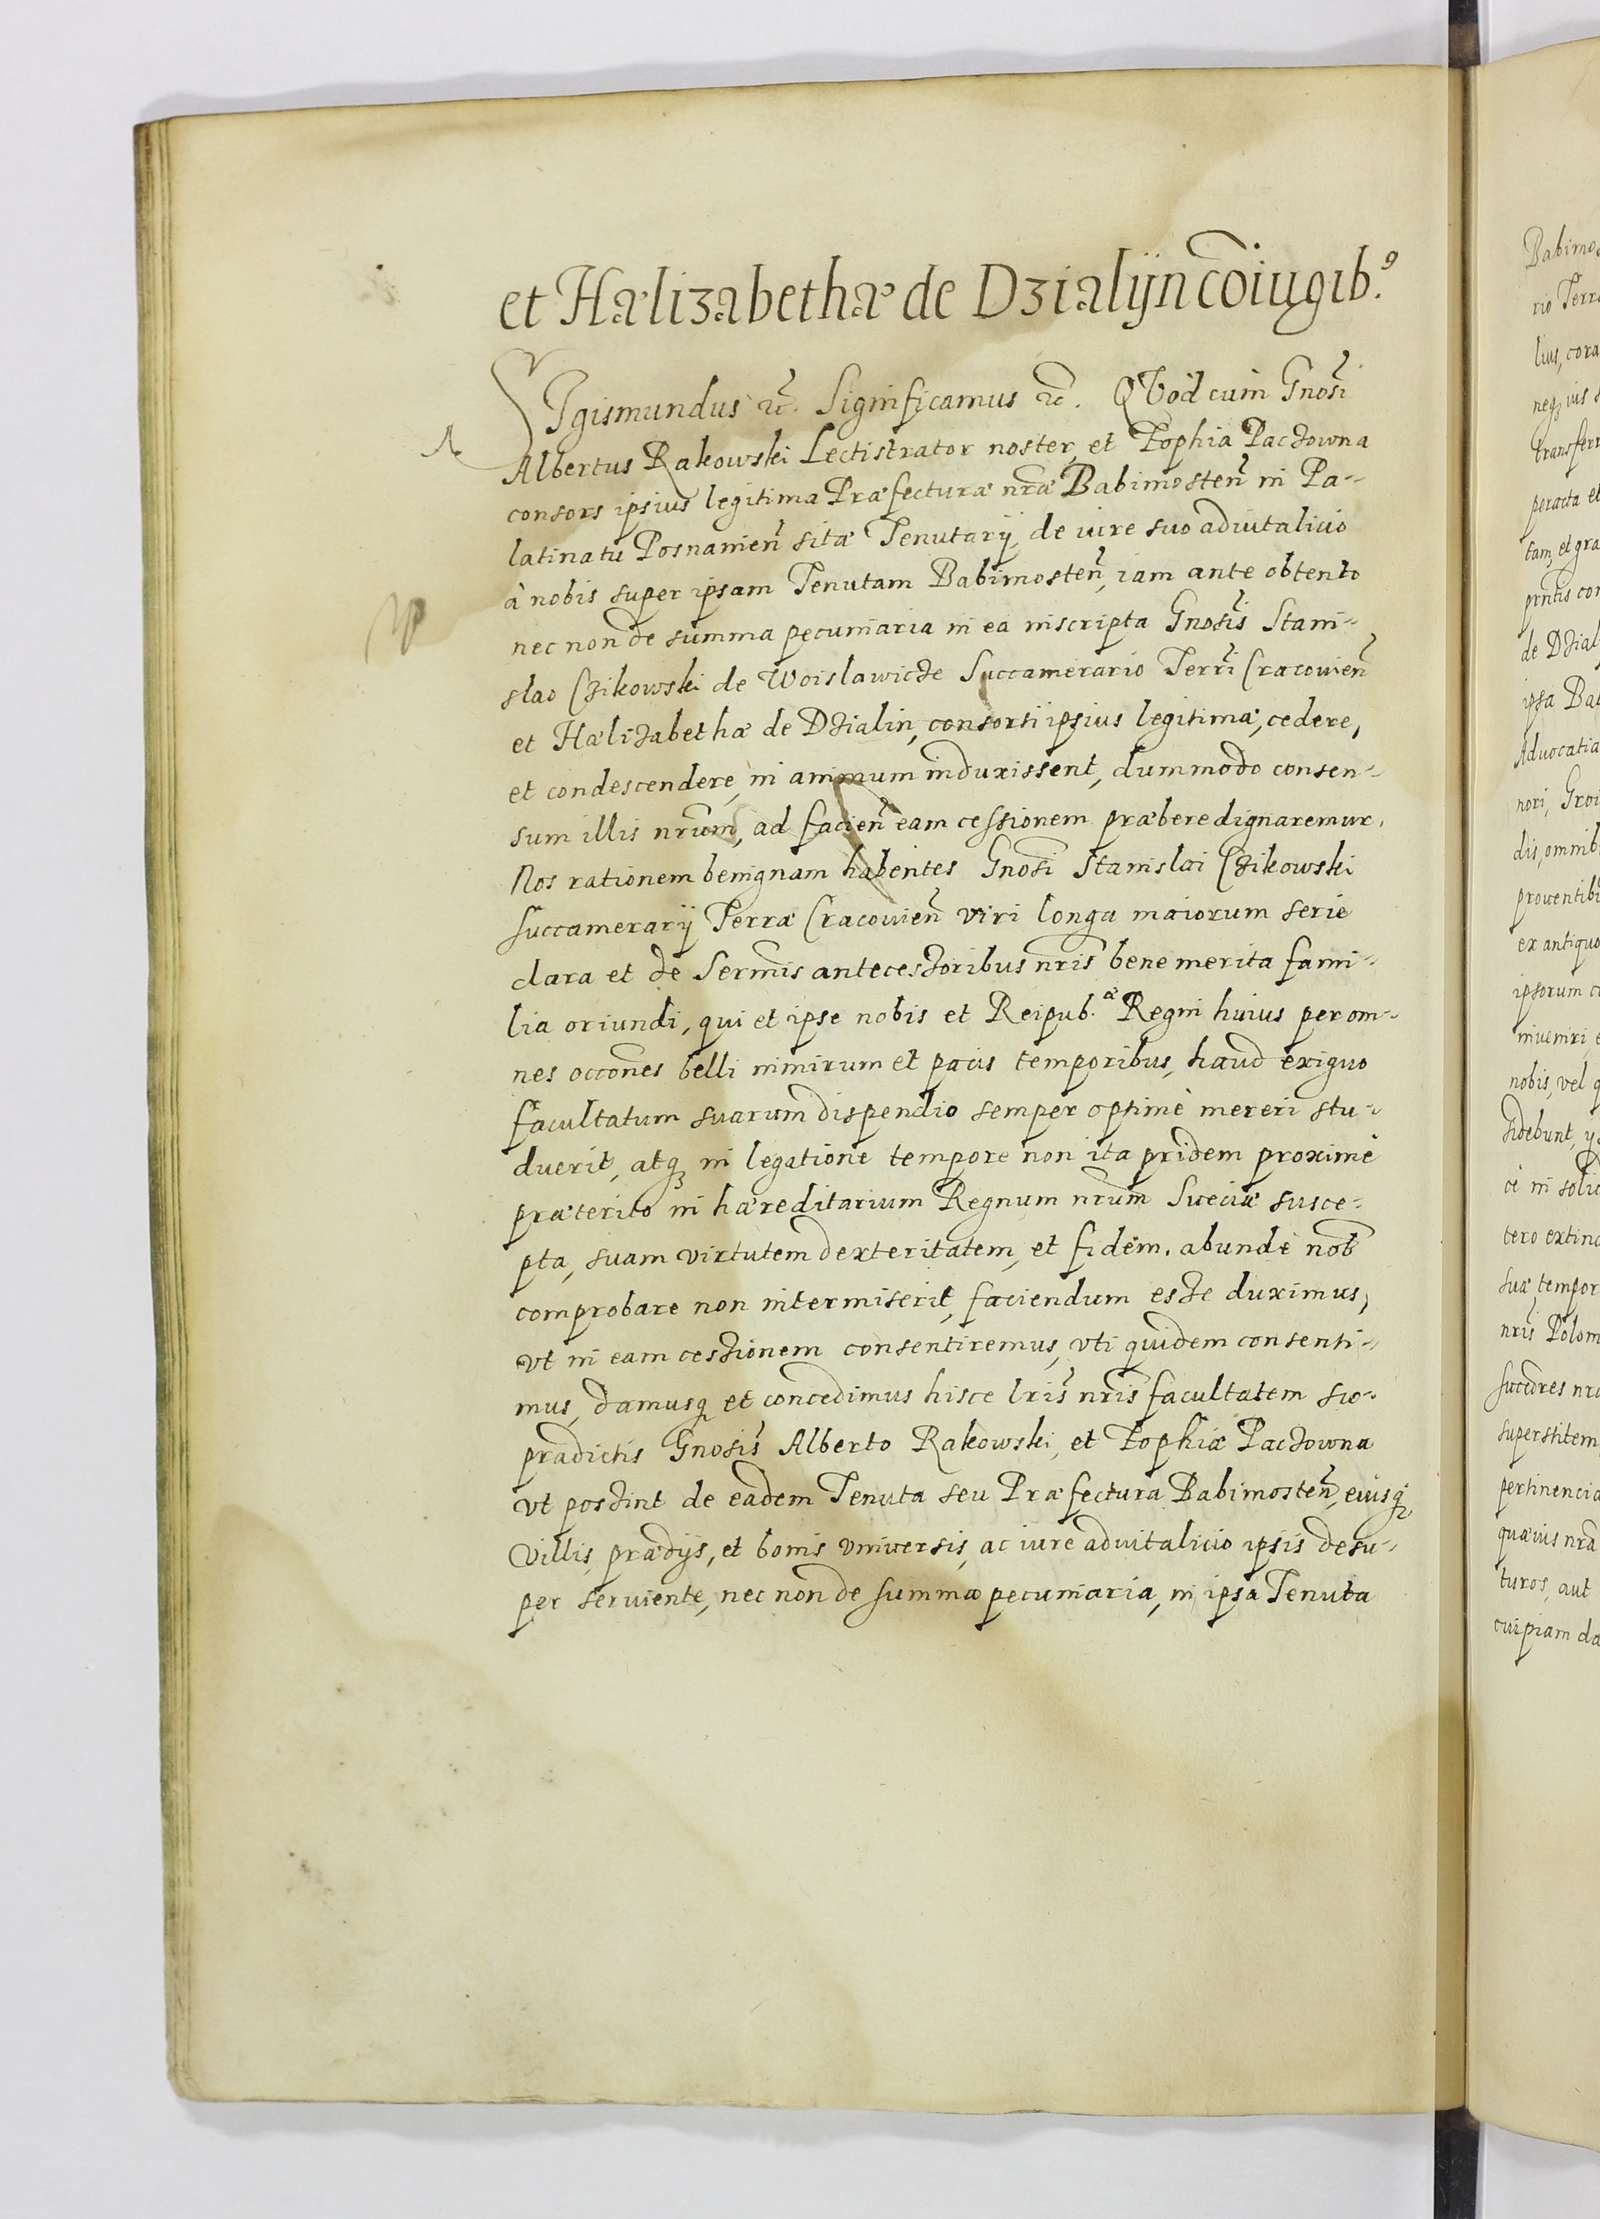 et Hælizabethæ de Dzialijn cõiugib.⁹
Sigismundus &c. Significamus &c. QVod cum Gnosi
Albertus Rakowski Lectistrator noster, et Zophia Paczowna
consors ipsius legitima Præfecturæ nrae Babimosten in Pa-
latinatu Posnanien sitæ Tenutarij, de iure suo aduitalicio
à nobis super ipsam Tenutam Babimosten, iam ante obtento
nec non de summa pecuniaria in ea inscripta Gnosis Stani-
slao Czikowski de Woislawicze Succamerario Terri Cracouien
et Hælizabethæ de Dzialin, consorti ipsius legitimæ, cedere,
et condescendere, in animum induxissent, dummodo consen-
sum illis nrum, ad facien eam cessionem præbere dignaremur.
Nos rationem benignam habentes Gnosi Stanislai Czikowski
succamerarij Terræ Cracouien viri longa maiorum serie
clara et de Sermis antecessoribus nris bene merita fami-
lia oriundi, qui et ipse nobis et Reipub.æ Regni huius per om-
nes occones belli nimirum et pacis temporibus, haud exiguo
facultatum suarum dispendio semper optimè mereri stu-
duerit, atq in legatione tempore non ita pridem proximè
præterito in hæreditarium Regnum nrum Sueciæ susce-
pta, suam virtutem dexteritatem, et fidem. abundè nob
comprobare non intermiserit, faciendum esse duximus,
vt in eam cessionem consentiremus, vti quidem consenti-
mus, damusq et concedimus hisce lris nris facultatem su-
pradictis Gnosis Alberto Rakowski, et Zophiæ Paczowna
vt possint de eadem Tenuta seu Præfectura Babimosten, eiusq
villis, prædijs, et bonis vniuersis, ac iure aduitalicio ipsis desu-
per seruiente, nec non de summa pecuniaria, in ipsa Tenuta
Babimos
rio Terra
lius, cora
neq ius s
transferr
peracta et
tam, et gra
prntis con
de Dzial
ipsa Bab
Aduocatia
nori, Groi
dis, omnib
prouentib
ex antiquo
ipsorum c
inueniri, e
nobis, vel q
sidebunt, y
ce in solid
tero extinc
suæ tempor
nris Polon
succores nr
superstitem
pertinencia
quæ ius nra
turos, aut
cuipiam da